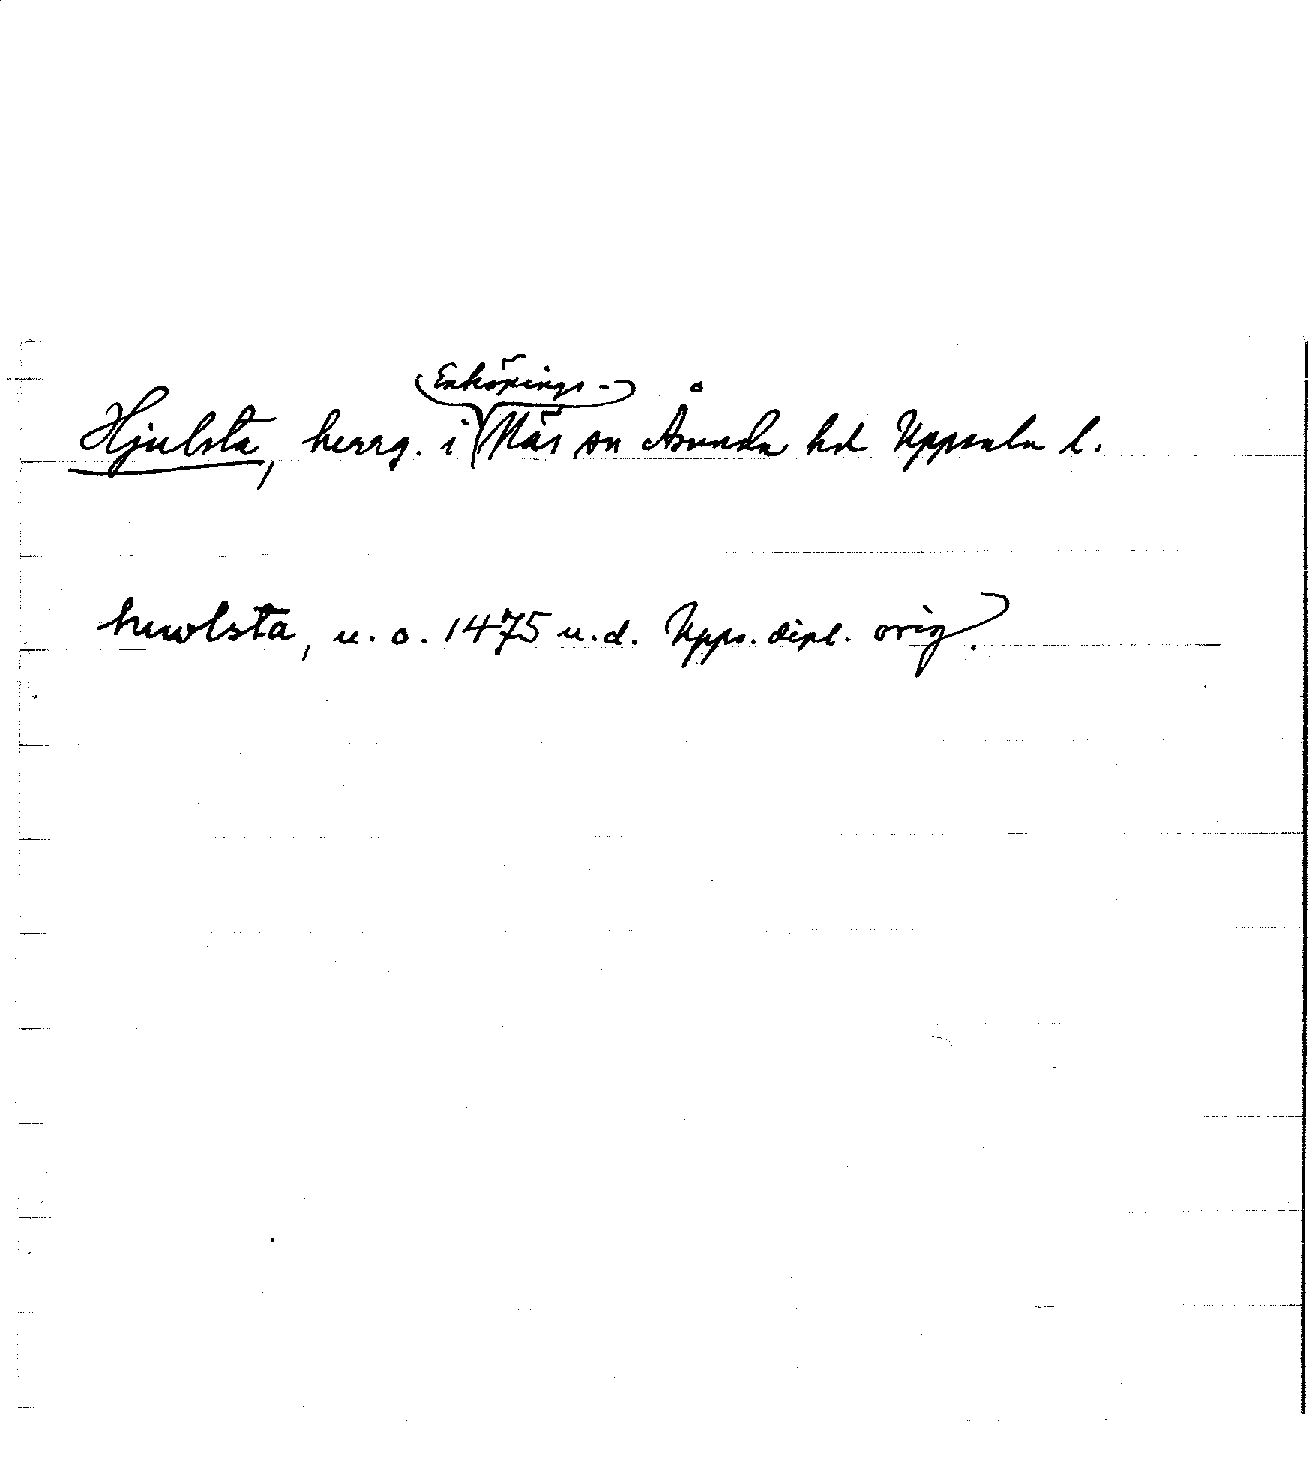 Hjulsta, herrg. i Enköpings-Näs sn Åsunda hd Uppsala l.
hiwlsta, u. o. 1475 u. d. Upps. dipl. orig.